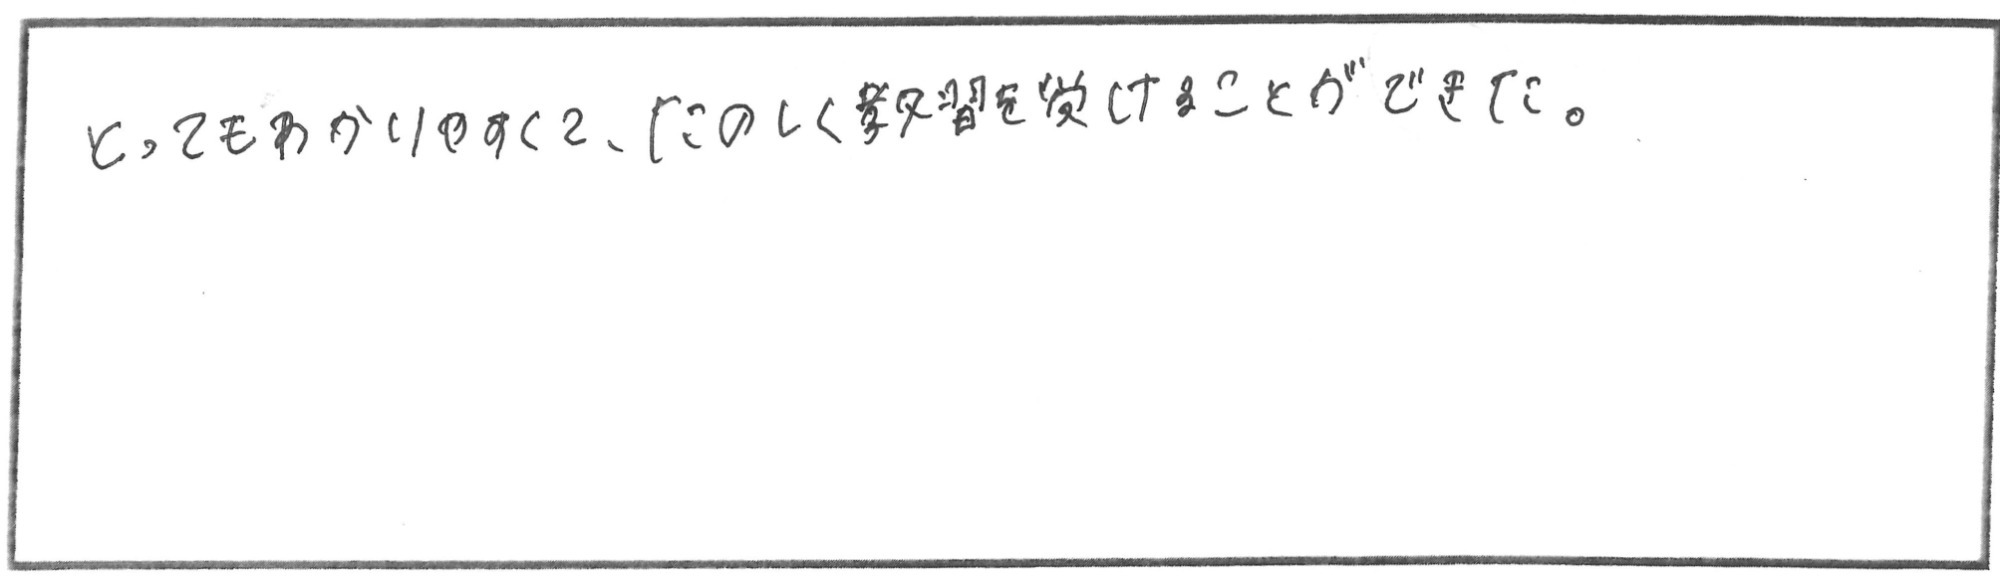 とってもわかりやすくて、たのしく教習を受けることができた。